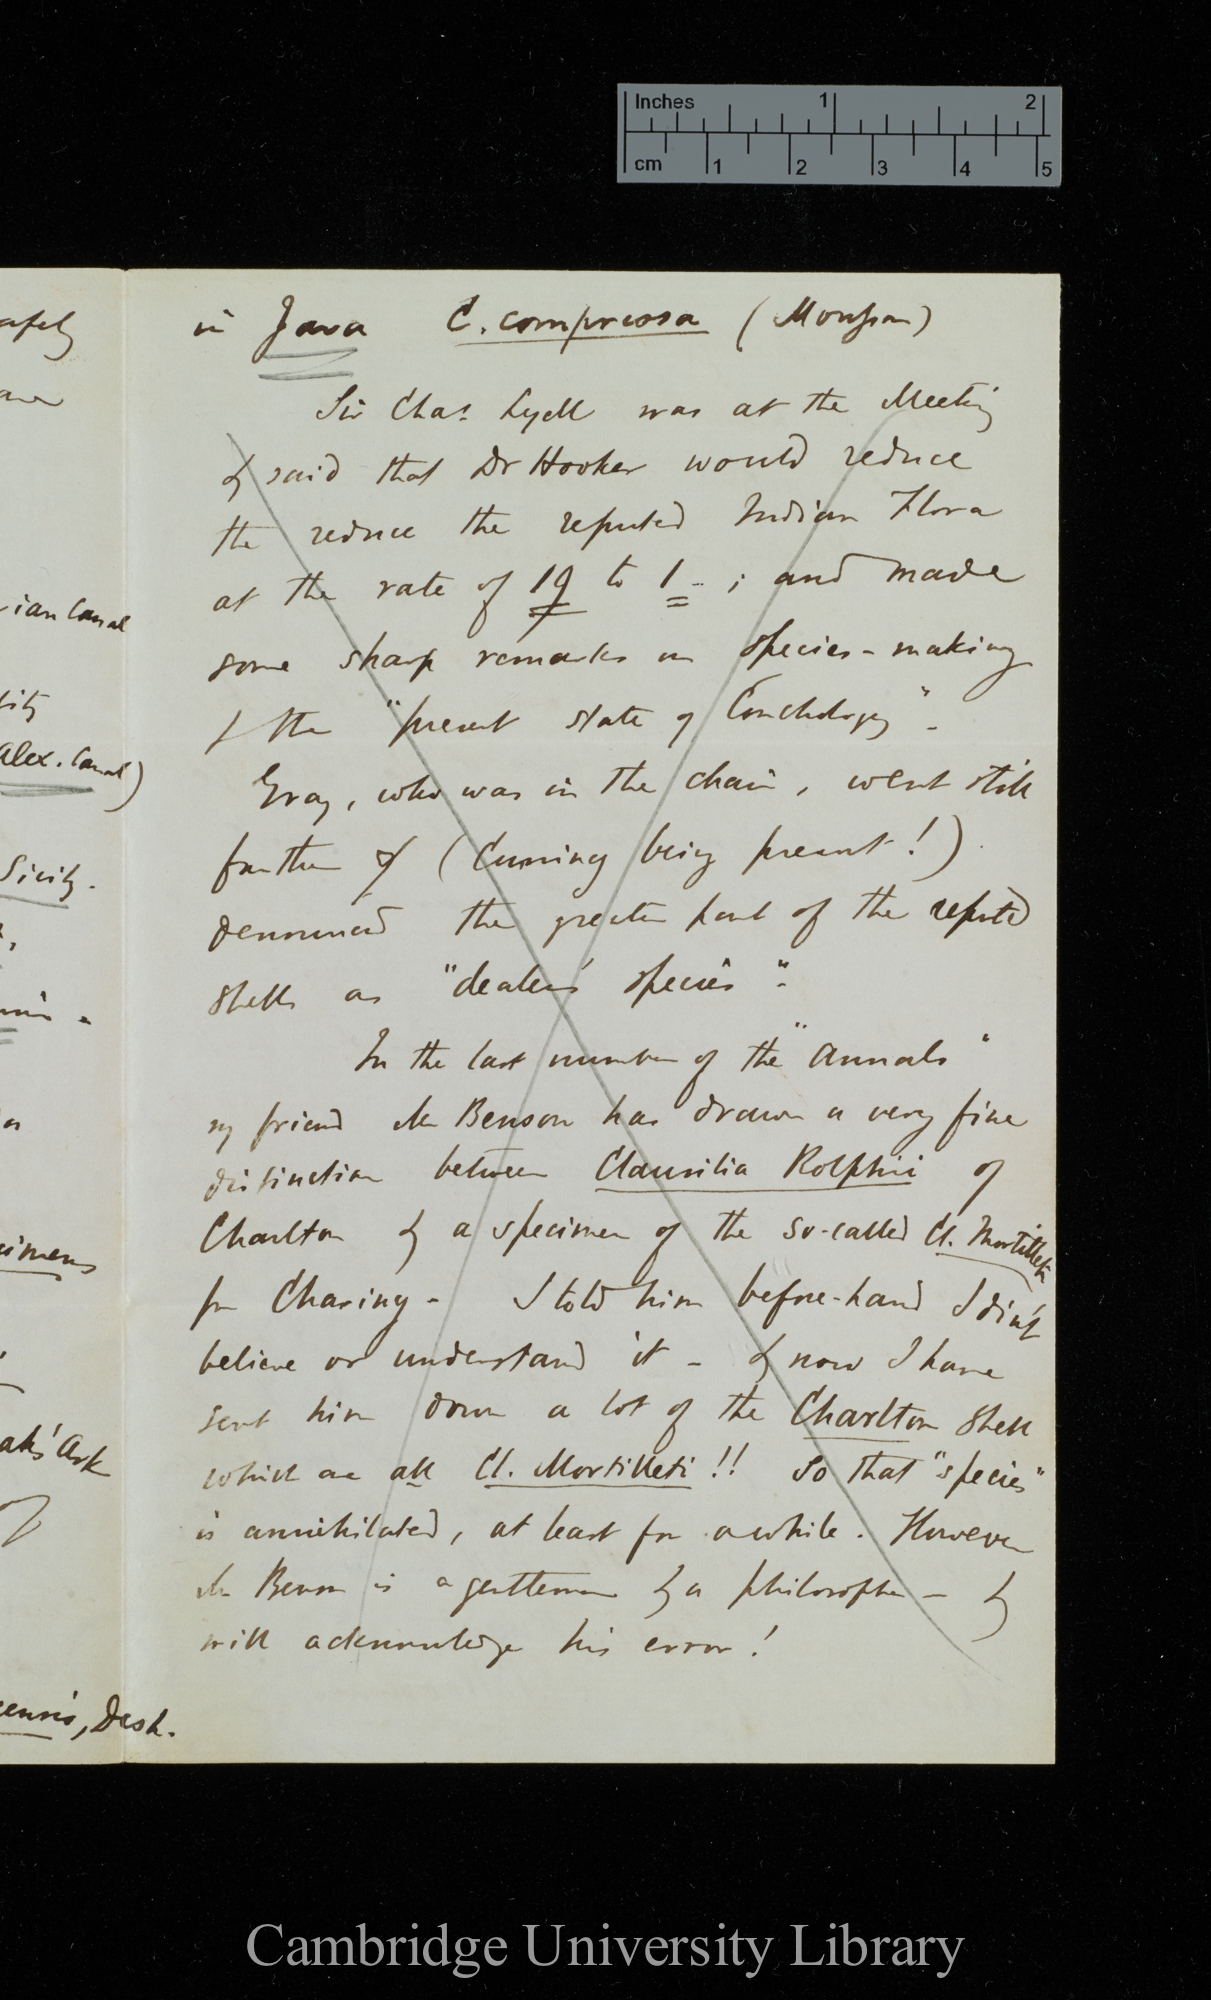 Inches 1 2
cm 1 2 3 4 5
in Java C. compressa (Mousson)
Sir Chas. Lyell was at the Meeting
& said that Dr Hooker would reduce
the reduce the reputed Indian Flora
at the rate of 19 to 1 - ; and made
some sharp remarks on species-making
& the "present state of Conchology" -
Gray, who was in the chair, went still
farther & (Cuming being present!)
denounced the greater part of the reputed
shells as "dealers' species".
In the last number of the "Annals"
my friend Mr Benson has drawn a very fine
distinction between Clausilia Rolphii of
Charlton & a specimen of the so-called Cl. Mortilleti
fm Charing - I told him before-hand I didn't
believe or understand it - & now I have
sent him down a lot of the Charlton shell
which are all Cl. Mortilleti!! So that "species"
is annihilated, at least for a while. However
Mr Benson is a gentleman & a philosopher - &
will acknowledge his error!
ian Canal
Alex. Canal)
Sicily.
cimens
Ark
ensis, Desh.
Cambridge University Library